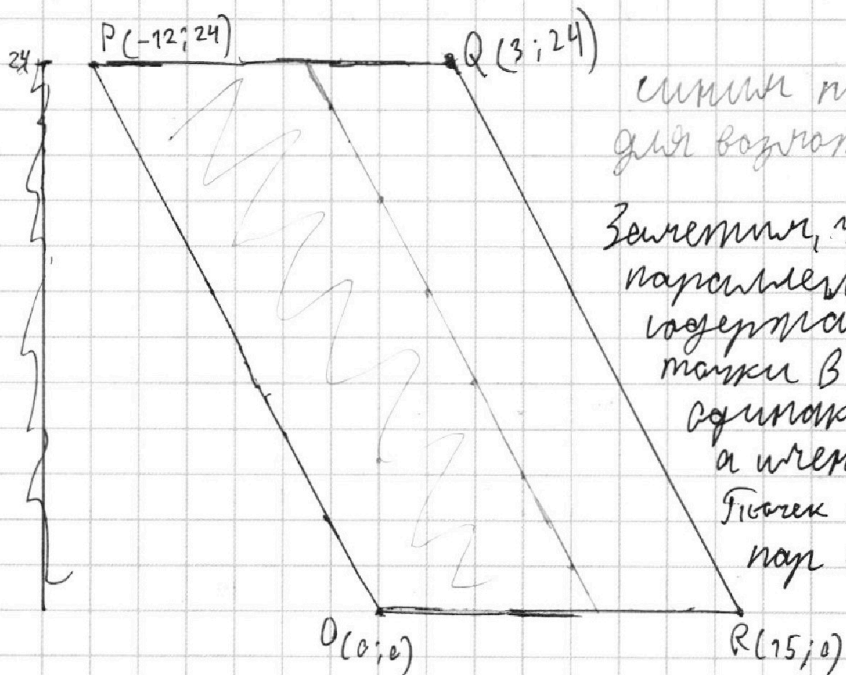 24
P(-12;24)
Q(3;24)
синим п
для возмож
Заметим, ч
параллел
содержа
точки В
одинак
а имен
точек
пар
O(0;0)
R(15;0)